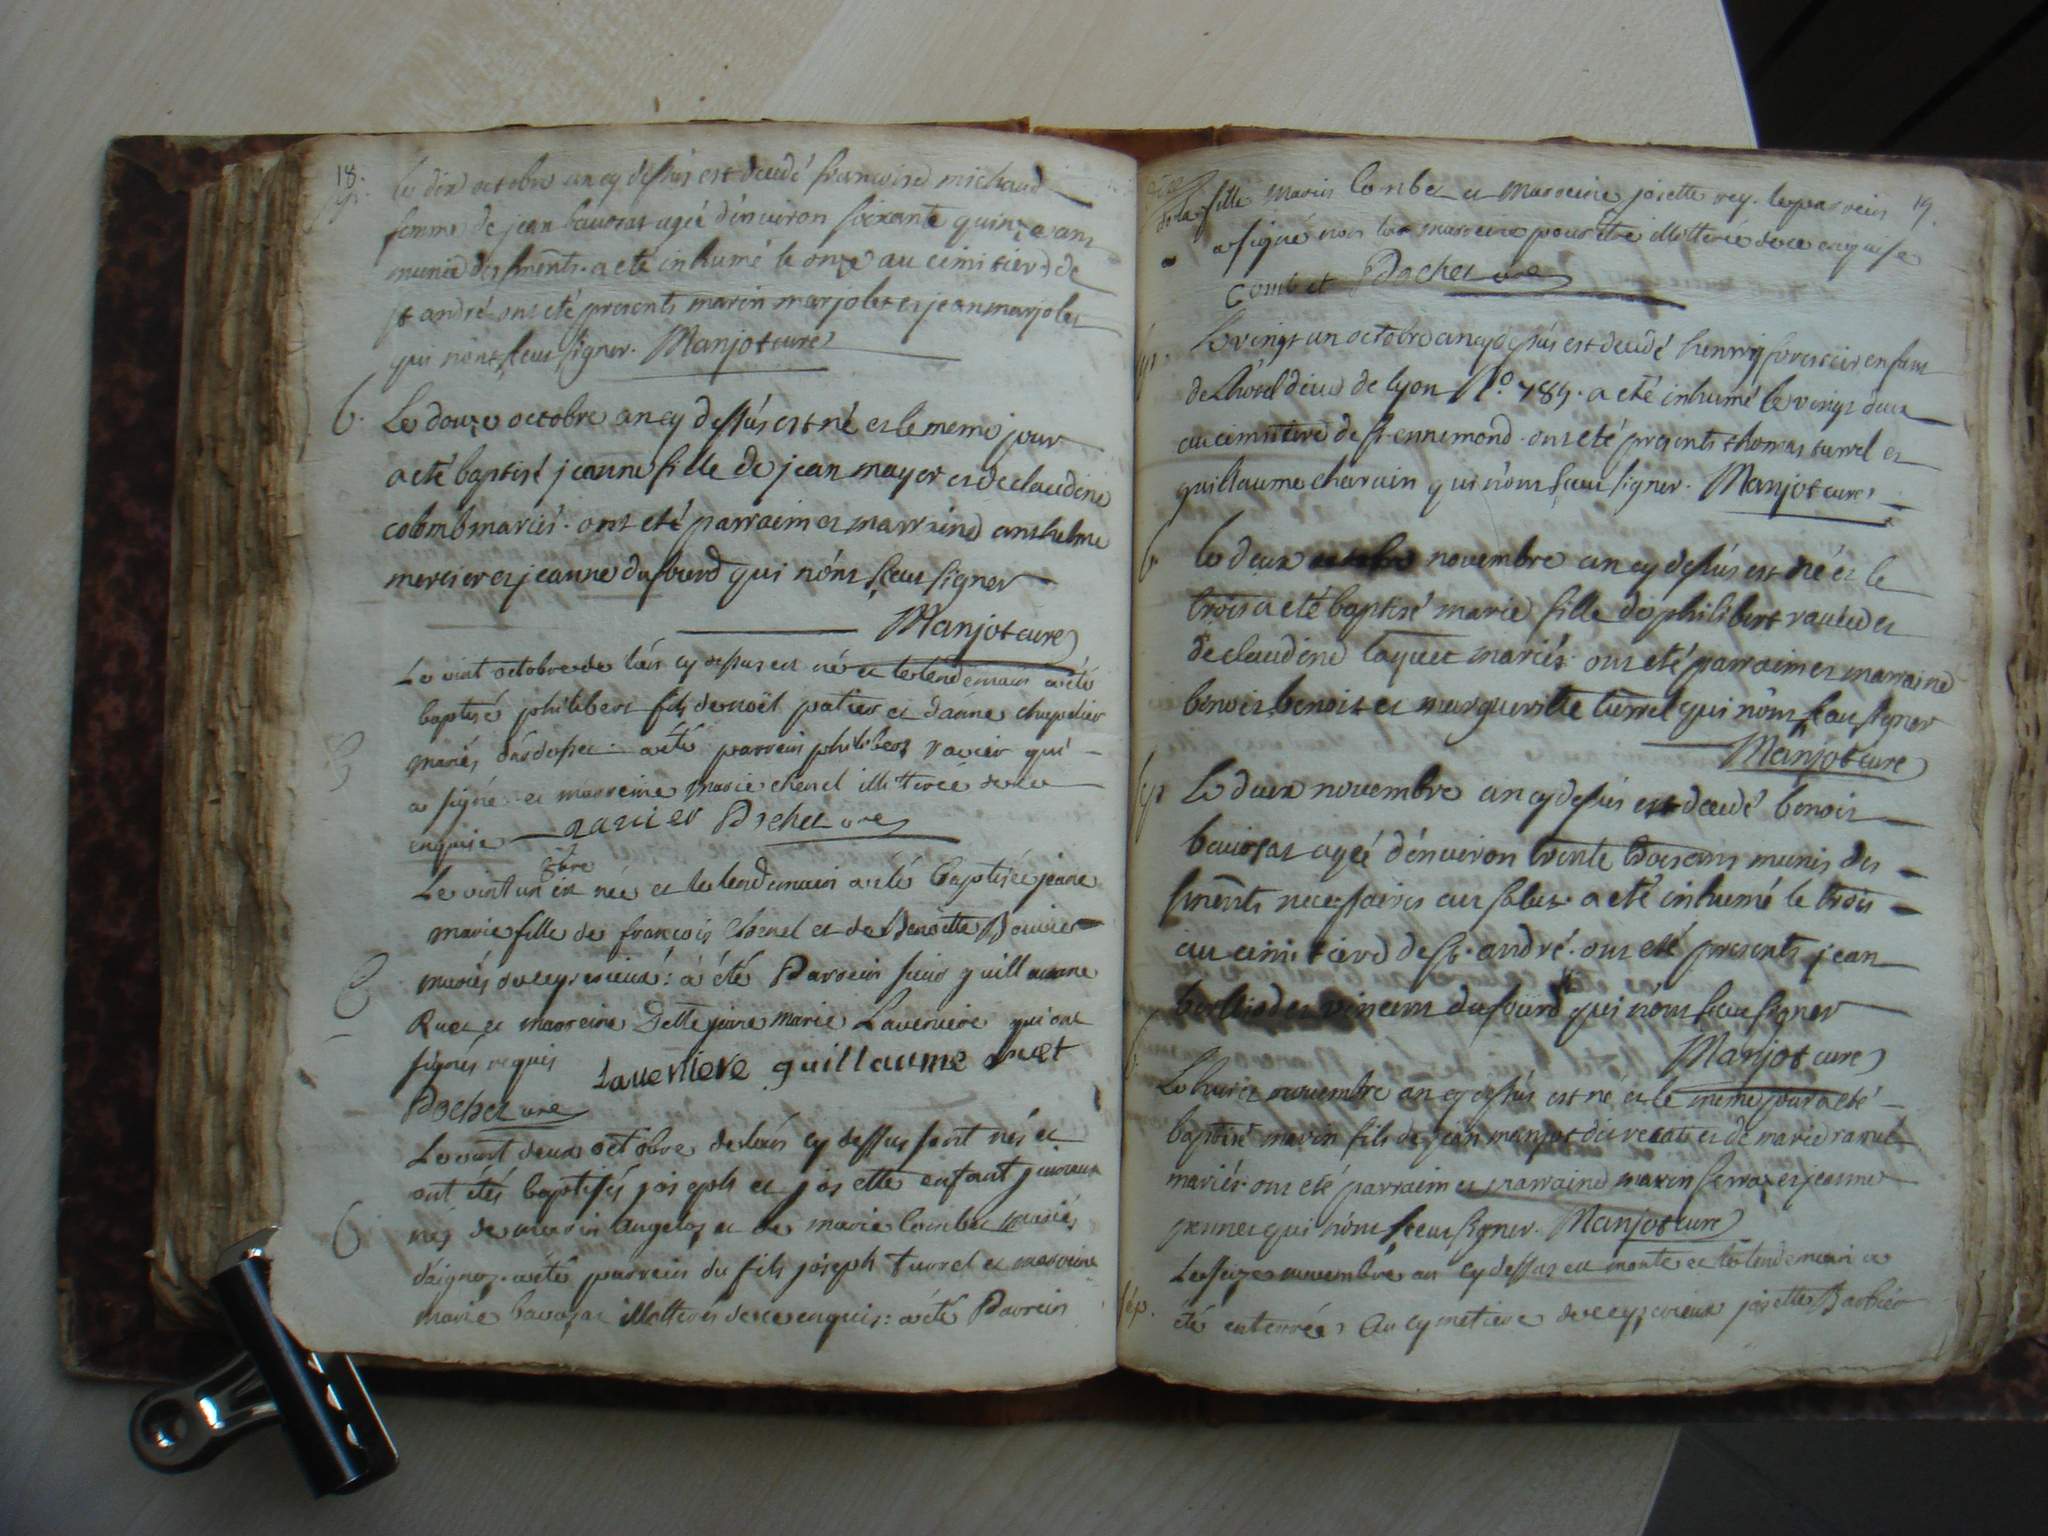 18.
le dix octobre an cy dessus est decedé francoise michaud
femme de jean bavosat agée d'environ soixante quinze ans
munie des sments. a eté inhumé le onze au cimitiere de
st andré. ont eté presents marin marjolet et jean marjolet
qui n'ont sceu signer. Manjot curé
b. Le douze octobre an cy dessus est né et le meme jour
a eté baptisé jeanne fille de jean mayer et de claudine
colomb mariés. ont eté parrain et marraine anthelme
mercier et jeanne dufourd qui n'ont sceu signer
Manjot curé
Le vint octobre de l'an cy dessus est né et le lendemain a eté
baptisé philibert fils de noël patier et d'anne chapelier
mariés a eté parrein philibert ravier qui
a signé et marreine marie chenel illitérée de ce
enquise ravier Pochet curé
8bre
Le vint un est née et le lendemain a eté baptisée jeanne
marie fille de francois Chenel et de Benoitte Bouvier
mariés de leyrieux: a été Parrein sieur guillaume
Ruet et marreine Delle jeanne marie Laverniere qui ont
signés requis Laverniere guillaume ruet
Pochet curé
Le vint deux octobre de l'an cy dessus sont nés et
ont étés baptisés joseph et josette enfant jumeaux
nés de marin augelos et de marie Combet mariés
d'aignoz. a eté parrein du fils joseph turrel et marreine
marie bavosat illitterés de ce enquis: a eté Parrein
19.
de la fille Marin Combet et Marreine josette rey. le parrein
a signé non la marreine pour être illitterée de ce enquise
Combet Pochet curé
Le vingt un octobre an cy dessus est decedé henry enfant
de L'hotel dieu de lyon No. 789. a eté inhumé le vingt deux
au cimitiere de st ennemond. ont eté presents thomas turrel et
guillaume charvin qui n'ont sceu signer. Manjot curé
b. le deux novembre an cy dessus est né et le
trois a eté baptisé marie fille de philibert et
de claudine mariés. ont eté parrain et marraine
benoit benoit et marguerite turrel qui n'ont sceu signer
Manjot curé
Le deux novembre an cy dessus est decedé benoit
bavosat agée d'environ trente trois ans munis des
sments necessaires au salut. a eté inhumé le trois
au cimitiere de st. andré. ont eté presents jean
et vincent dufourd qui n'ont sceu signer
Manjot curé
Le huit novembre an cy dessus est né et le meme jour a eté
baptisé marin fils de jean manjot dit et de marie
mariés. ont eté parrain et marraine marin et jeanne
qui n'ont sceu signer. Manjot curé
Le seize novembre an cy dessus est morte et le lendemain a
sép. été enterrée Au cymetiere de leyrieux josette Barbier